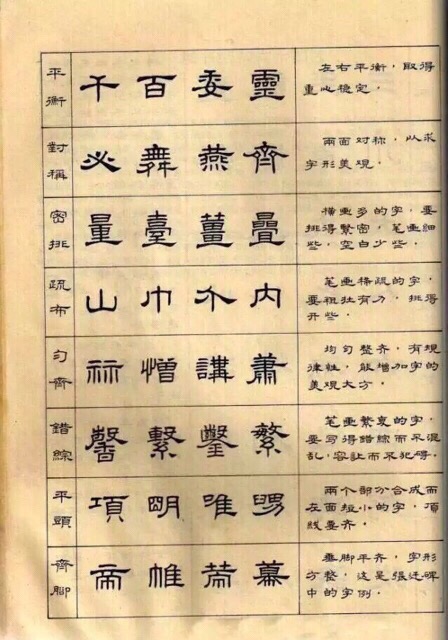 平衡
千百委靈
左右平衡，取得
重心稳定。
對稱
必舞燕齊
兩面对称，以求
字形美观。
密排
量臺薑疊
横画多的字，要
排得緊密，笔画细
些，空白少些。
疏布
山巾介内
笔画稀疏的字，
要粗壮有力，排得
开些。
匀齊
憎講蕭
均匀整齐，有規
律性，能增加字的
美观大方。
錯綜
馨繫鑿繁
笔画繁复的字，
要写得錯綜而不混
乱，容让而不犯碍。
平頭
項明唯
兩个部分合成而
左面短小的字，頂
线要齐。
齊脚
帝帷幕
垂脚平齐，字形
方整，这是張迁碑
中的字例。